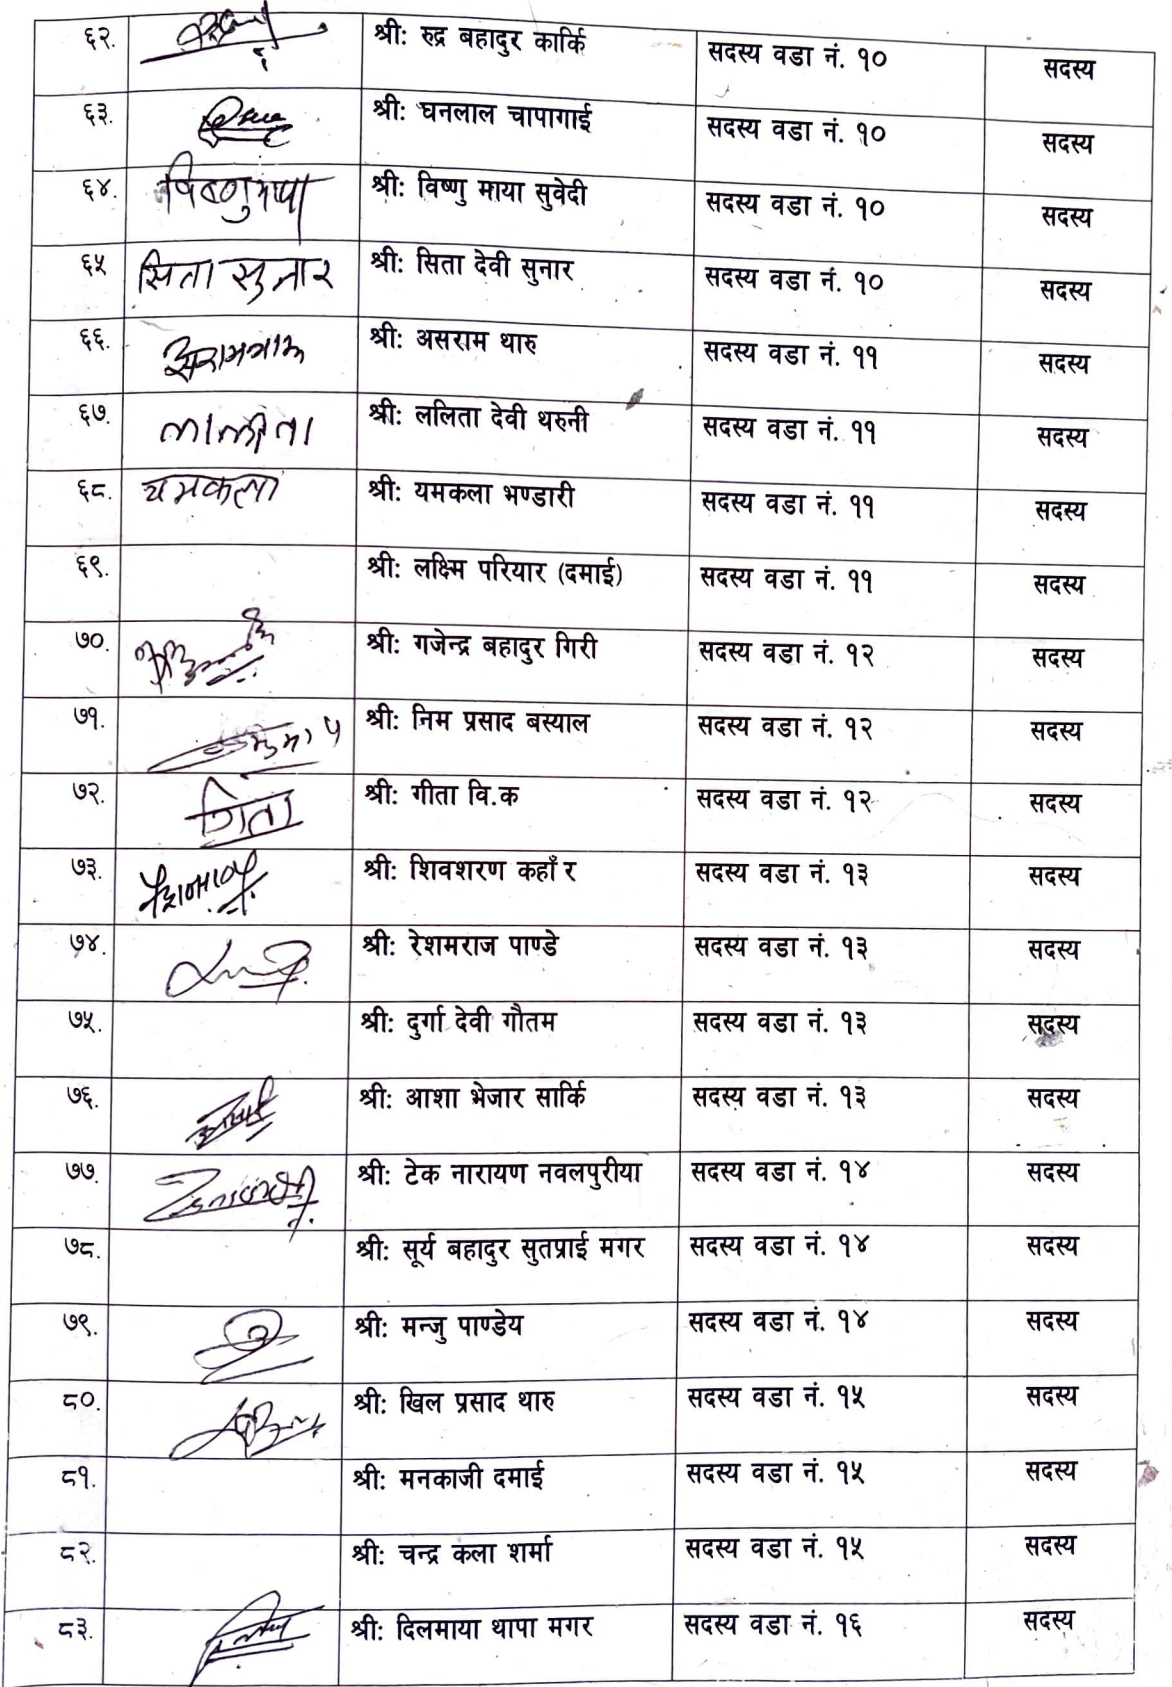 ६२. श्री: रुद्र बहादुर कार्कि सदस्य वडा नं. १० सदस्य
६३. श्री: घनलाल चापागाई सदस्य वडा नं. १० सदस्य
६४. विष्णुमाया श्री: विष्णु माया सुवेदी सदस्य वडा नं. १० सदस्य
६५ सिता सुनार श्री: सिता देवी सुनार सदस्य वडा नं. १० सदस्य
६६. श्री: असराम थारु सदस्य वडा नं. ११ सदस्य
६७. श्री: ललिता देवी थरुनी सदस्य वडा नं. ११ सदस्य
६८. यमकला श्री: यमकला भण्डारी सदस्य वडा नं. ११ सदस्य
६९. श्री: लक्ष्मि परियार (दमाई) सदस्य वडा नं. ११ सदस्य
७०. श्री: गजेन्द्र बहादुर गिरी सदस्य वडा नं. १२ सदस्य
७१. श्री: निम प्रसाद बस्याल सदस्य वडा नं. १२ सदस्य
७२. गिता श्री: गीता वि.क सदस्य वडा नं. १२ सदस्य
७३. श्री: शिवशरण कहाँर सदस्य वडा नं. १३ सदस्य
७४. श्री: रेशमराज पाण्डे सदस्य वडा नं. १३ सदस्य
७५. श्री: दुर्गा देवी गौतम सदस्य वडा नं. १३ सदस्य
७६. श्री: आशा भेजार सार्कि सदस्य वडा नं. १३ सदस्य
७७. श्री: टेक नारायण नवलपुरीया सदस्य वडा नं. १४ सदस्य
७८. श्री: सूर्य बहादुर सुतप्राई मगर सदस्य वडा नं. १४ सदस्य
७९. श्री: मन्जु पाण्डेय सदस्य वडा नं. १४ सदस्य
८०. श्री: खिल प्रसाद थारु सदस्य वडा नं. १५ सदस्य
८१. श्री: मनकाजी दमाई सदस्य वडा नं. १५ सदस्य
८२. श्री: चन्द्र कला शर्मा सदस्य वडा नं. १५ सदस्य
८३. श्री: दिलमाया थापा मगर सदस्य वडा नं. १६ सदस्य